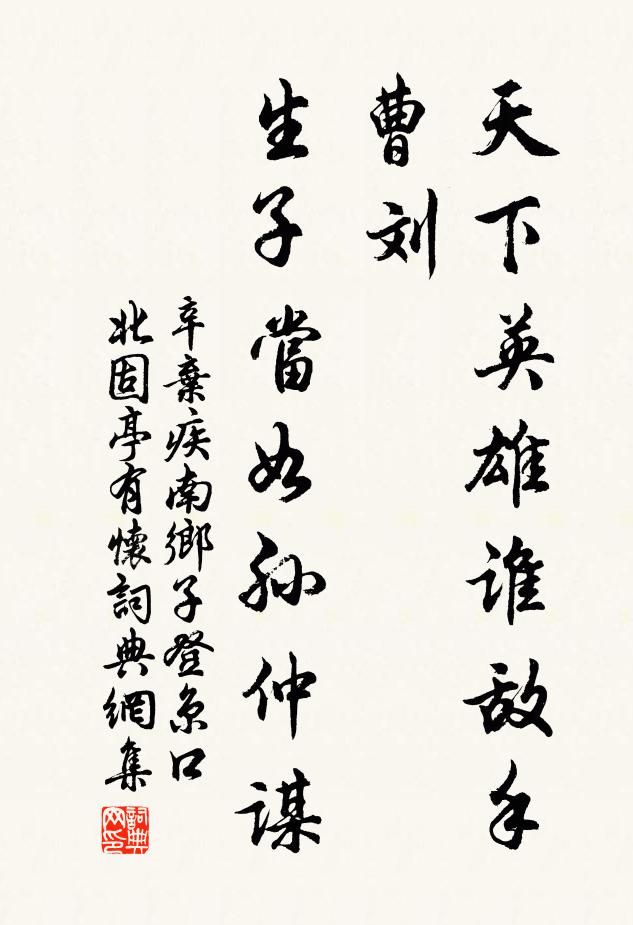 天下英雄谁敌手
曹刘
生子當如孙仲謀
辛棄疾南鄉子登京口
北固亭有懷詞典網集
詞典
网印